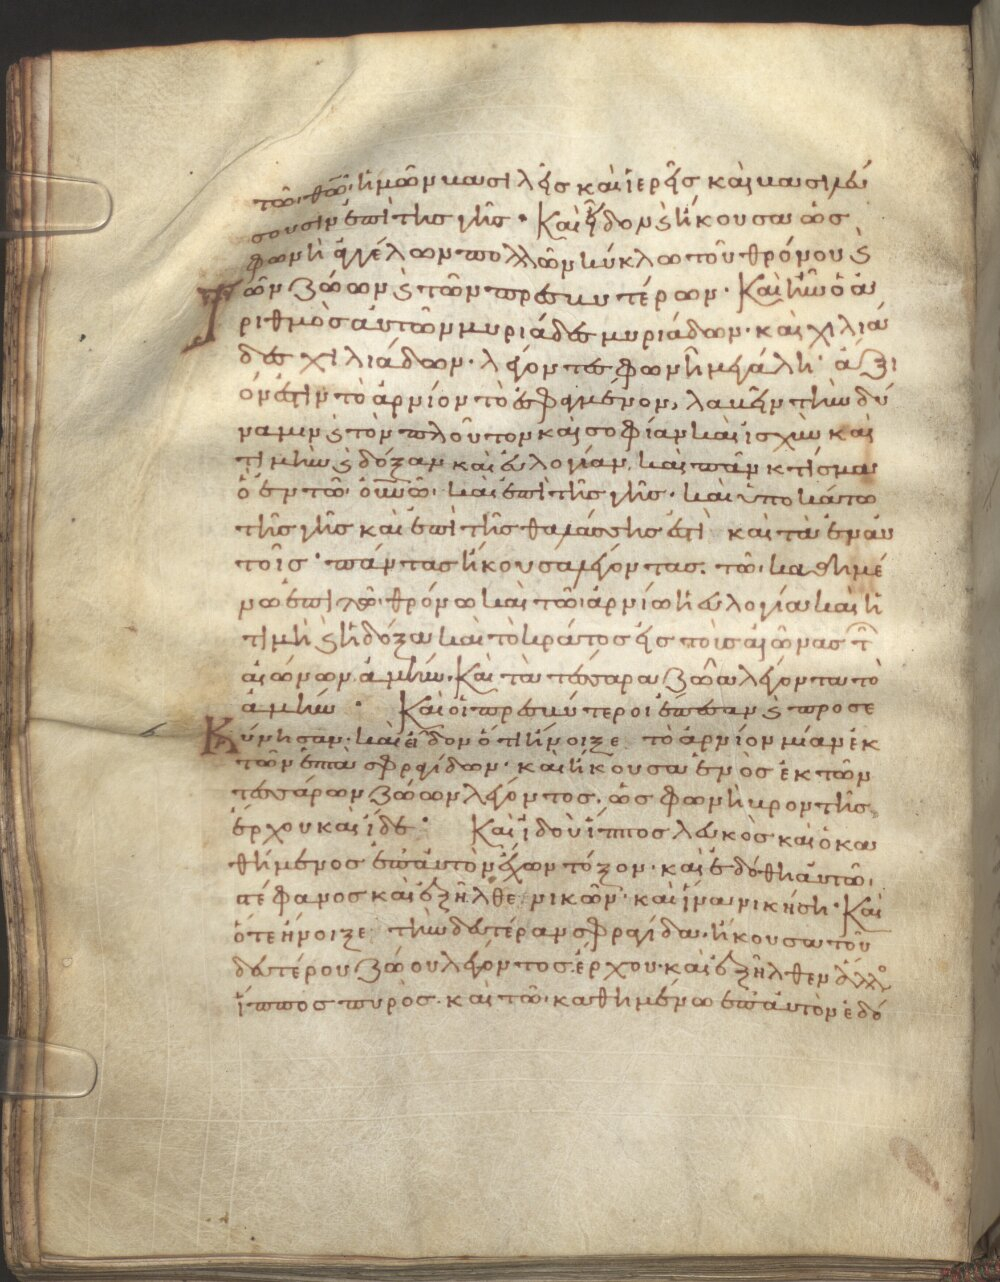 τῶ θῶ ἡμῶν βασιλεῖς καὶ ἱερεῖς καὶ βασιλεύ
σουσιν ἐπὶ της γῆς · Καὶ εἶδον ϗ ἤκουσα ὡς
φωνὴ ἀγγέλων πολλῶν κύκλω τοῦ θρόνου ϗ
τῶν ζώων ϗ τῶν πρεσβυτέρων · Καὶ ἦν ὁ ἀ
ριθμὸς αὐτῶν μυριάδες μυριάδων · καὶ χιλιά
δες χιλιάδων · λέγοντες φωνῆ μεγάλη · ἄξι
όν ἐστιν τὸ ἀρνίον τὸ ἐσφαγμένον, λαβεῖν τὴν δύ
ναμιν ϗ τὸν πλοῦτον καὶ σοφίαν καὶ ἰσχὺν καὶ
τιμὴν ϗ δόξαν καὶ εὐλογίαν, καὶ πᾶν κτίσμα
ὃ ἐν τῶ οὐνῶ · καὶ ἐπὶ τῆς γῆς · καὶ ὑποκάτω
τῆς γῆς καὶ ἐπὶ τῆς θαλάσσης ἐστὶ καὶ τὰ ἐν αὐ
τοῖς · πάντας ἤκουσα λέγοντας · τῶ καθημέ
νω ἐπὶ τῶ θρόνω καὶ τῶ ἀρνίω ἡ εὐλογία καὶ ἡ
τιμὴ ϗ ἡ δόξα καὶ τὸ κράτος εἰς τοὺς αἰῶνας τῶ
αἰώνων ἀμήν · Καὶ τὰ τέσσαρα ζῶα λέγοντα τὸ
ἀμήν · Καὶ οἱ πρεσβύτεροι ἔπεσαν ϗ προσε
Κύνησαν · καὶ εἶδον ὅτι ἤνοιξε τὸ ἀρνίον μίαν ἐκ
τῶν ἑπτὰ σφραγίδων · καὶ ἤκουσα ἑνὸς ἐκ τῶν
τεσσάρων ζώων λέγοντος · ὡς φωνὴ βροντῆς
ἔρχου καὶ ἴδε · Καὶ ἰδοὺ ἵππος λευκὸς καὶ ὁ κα
θήμενος ἐπ' αὐτὸν ἔχων τόξον · καὶ ἐδόθη αὐτῶ
στέφανος καὶ ἐξῆλθε νικῶν · καὶ ἵνα νικήση · Καὶ
ὅτε ἤνοιξε τὴν δευτέραν σφραγίδα · ἤκουσα τοῦ
δευτέρου ζώου λέγοντος · ἔρχου · καὶ ἐξῆλθεν ἄλλο
ἵππος πυρὸς · καὶ τῶ καθημένω ἐπ' αὐτὸν ἐδό